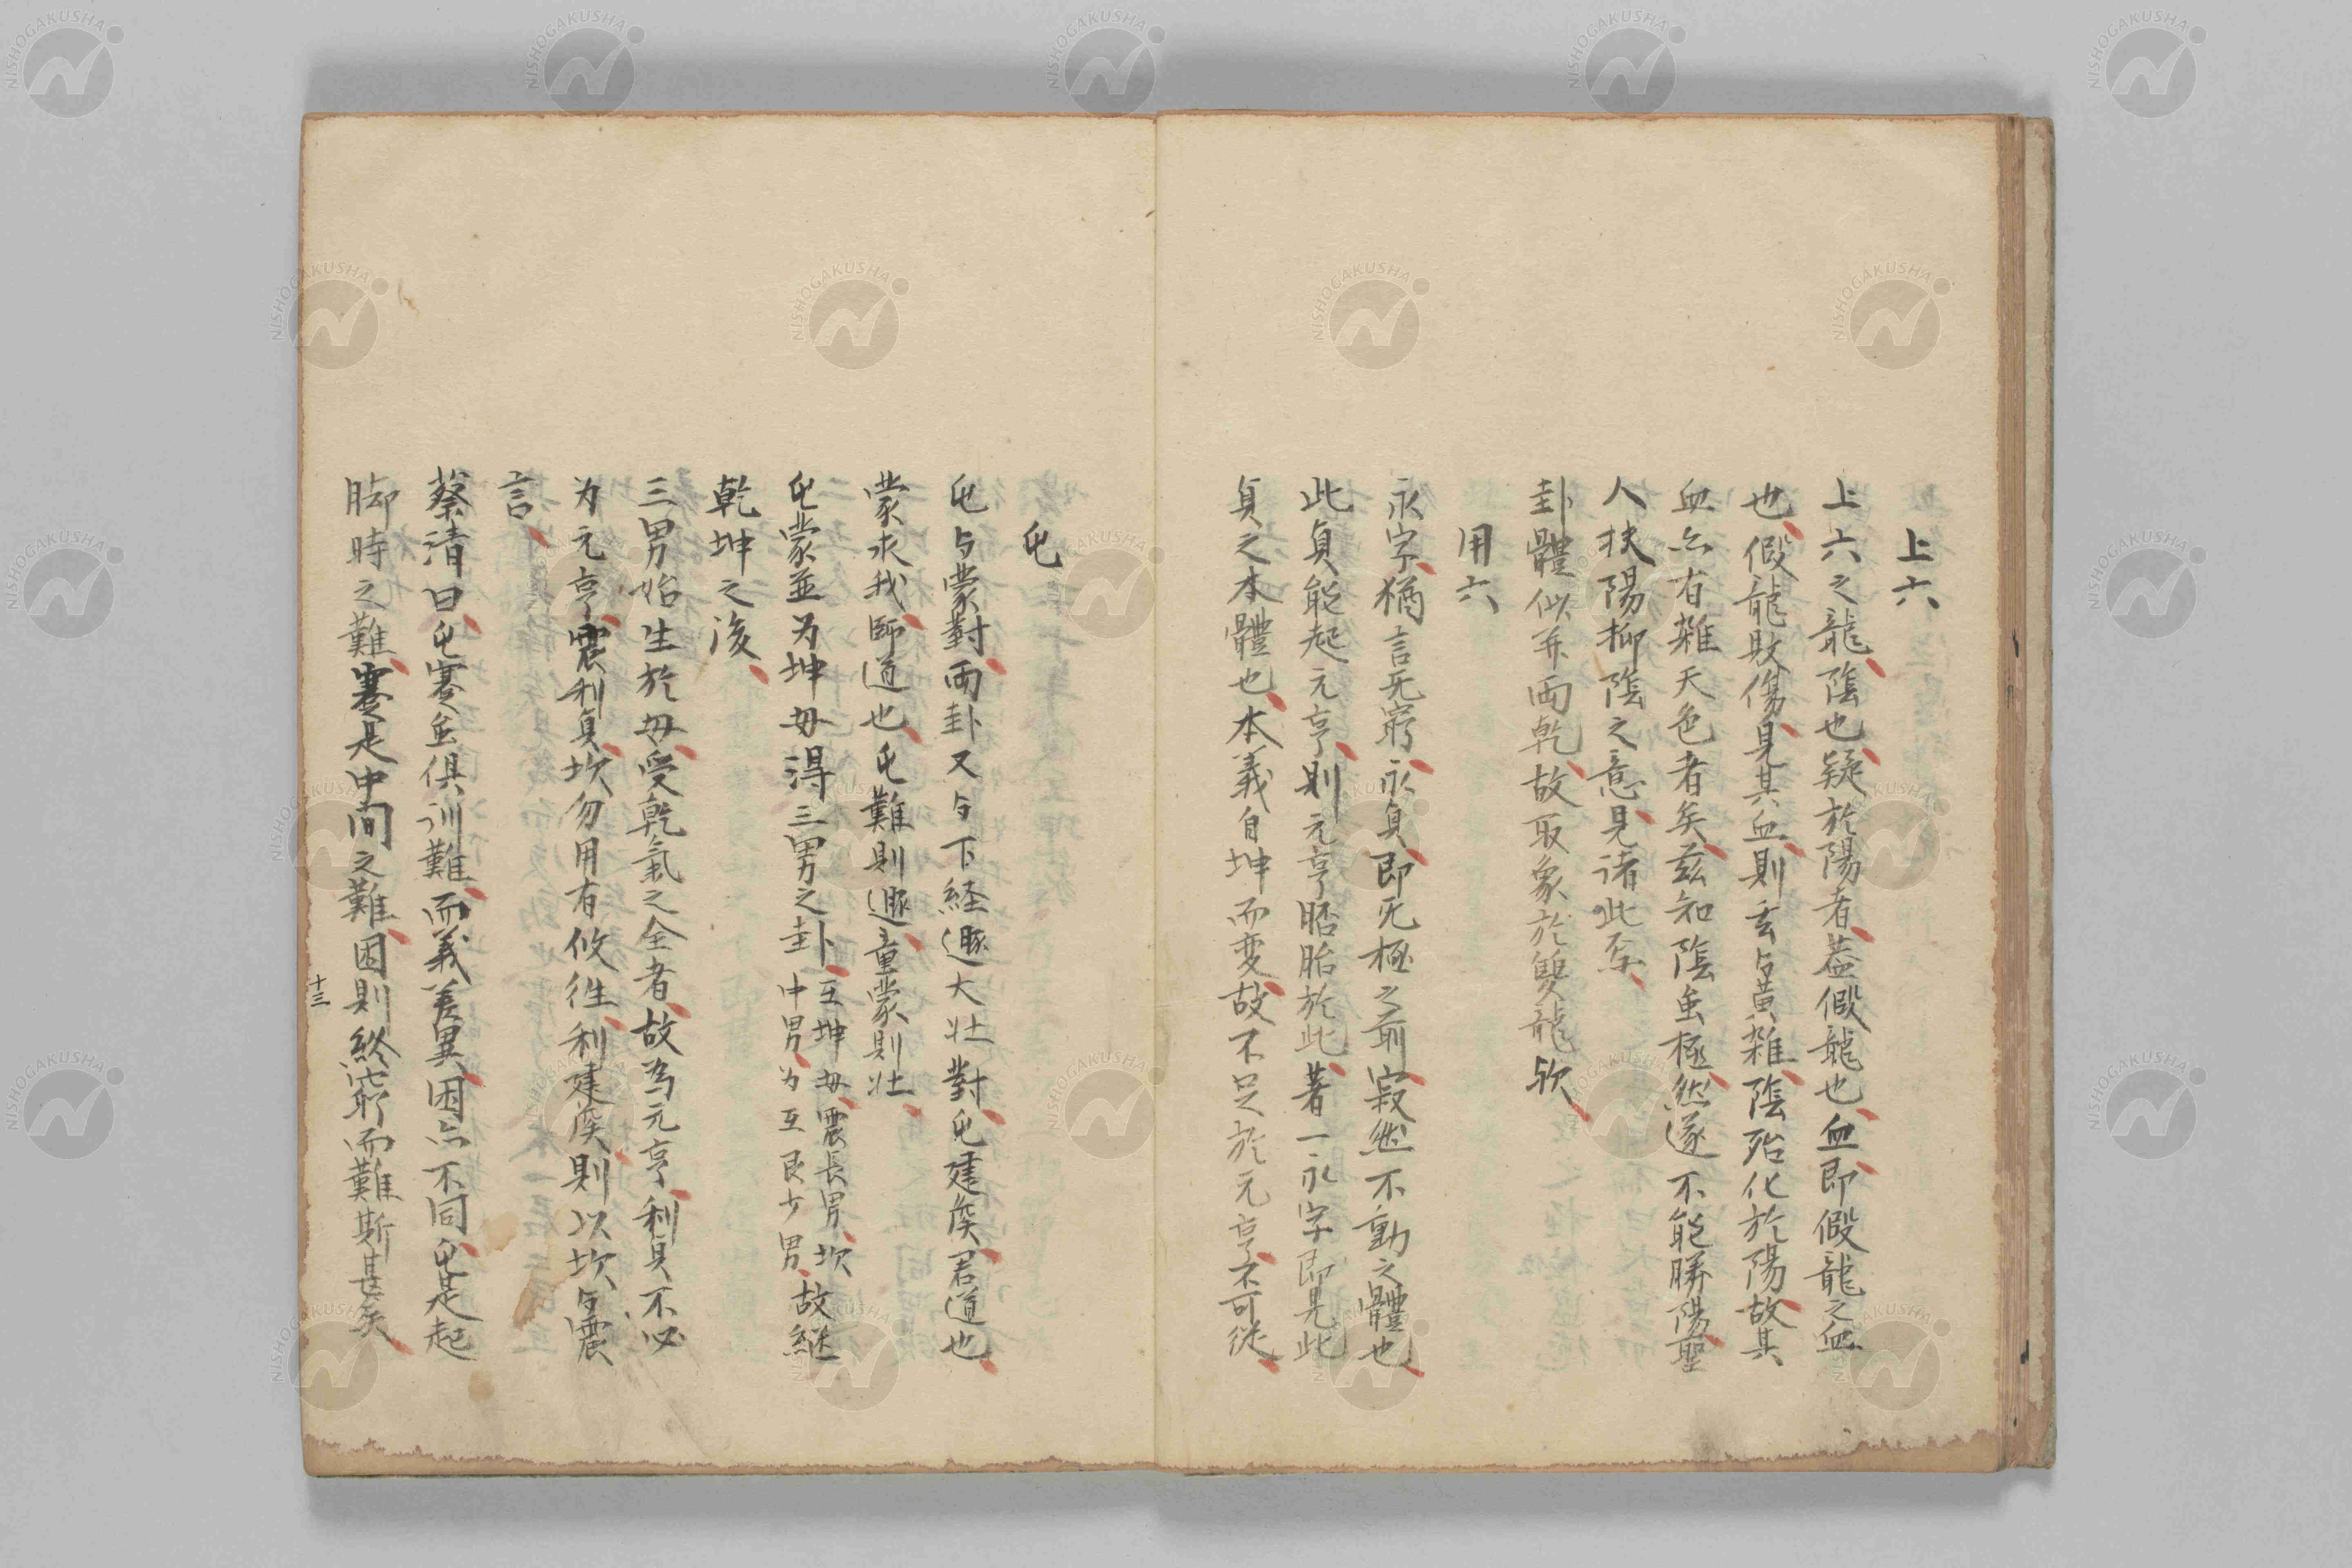 上六
上六之龍陰也疑於陽者蓋假龍也血即假龍之血
也假龍敗傷見其血則玄与黃雜陰殆化於陽故其
血亦有雜天色者矣茲知陰虽極然遂不能勝陽聖
人扶陽抑陰之意見諸此至
卦體似并両乾故取象於雙龍欤
用六
永字猶言无窮永貞即无極之前寂然不動之體也
此貞能起元亨則元亨胚胎於此著一永字即見此
貞之本體也本義自坤而变故不足於元亨不可從
屯
屯与蒙對両卦又与下経遯大壮對屯建侯君道也
蒙求我師道也屯難則遯童蒙則壮
屯蒙並为坤母得三男之卦互坤母震長男坎
中男为互艮少男故継
乾坤之後
三男始生於母受乾氣之全者故為元亨利貞不必
为元亨震利貞坎勿用有攸往利建侯則以坎与震
言
蔡清曰屯蹇虽俱訓難而義差異困亦不同屯是起
脚時之難蹇是中間之難困則終窮而難斯甚矣
十三
NISHOGAKUSHA